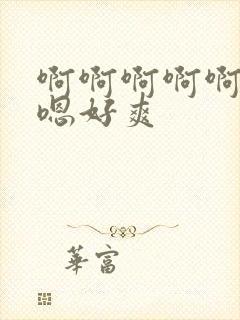 啊啊啊啊啊
嗯好爽
華富